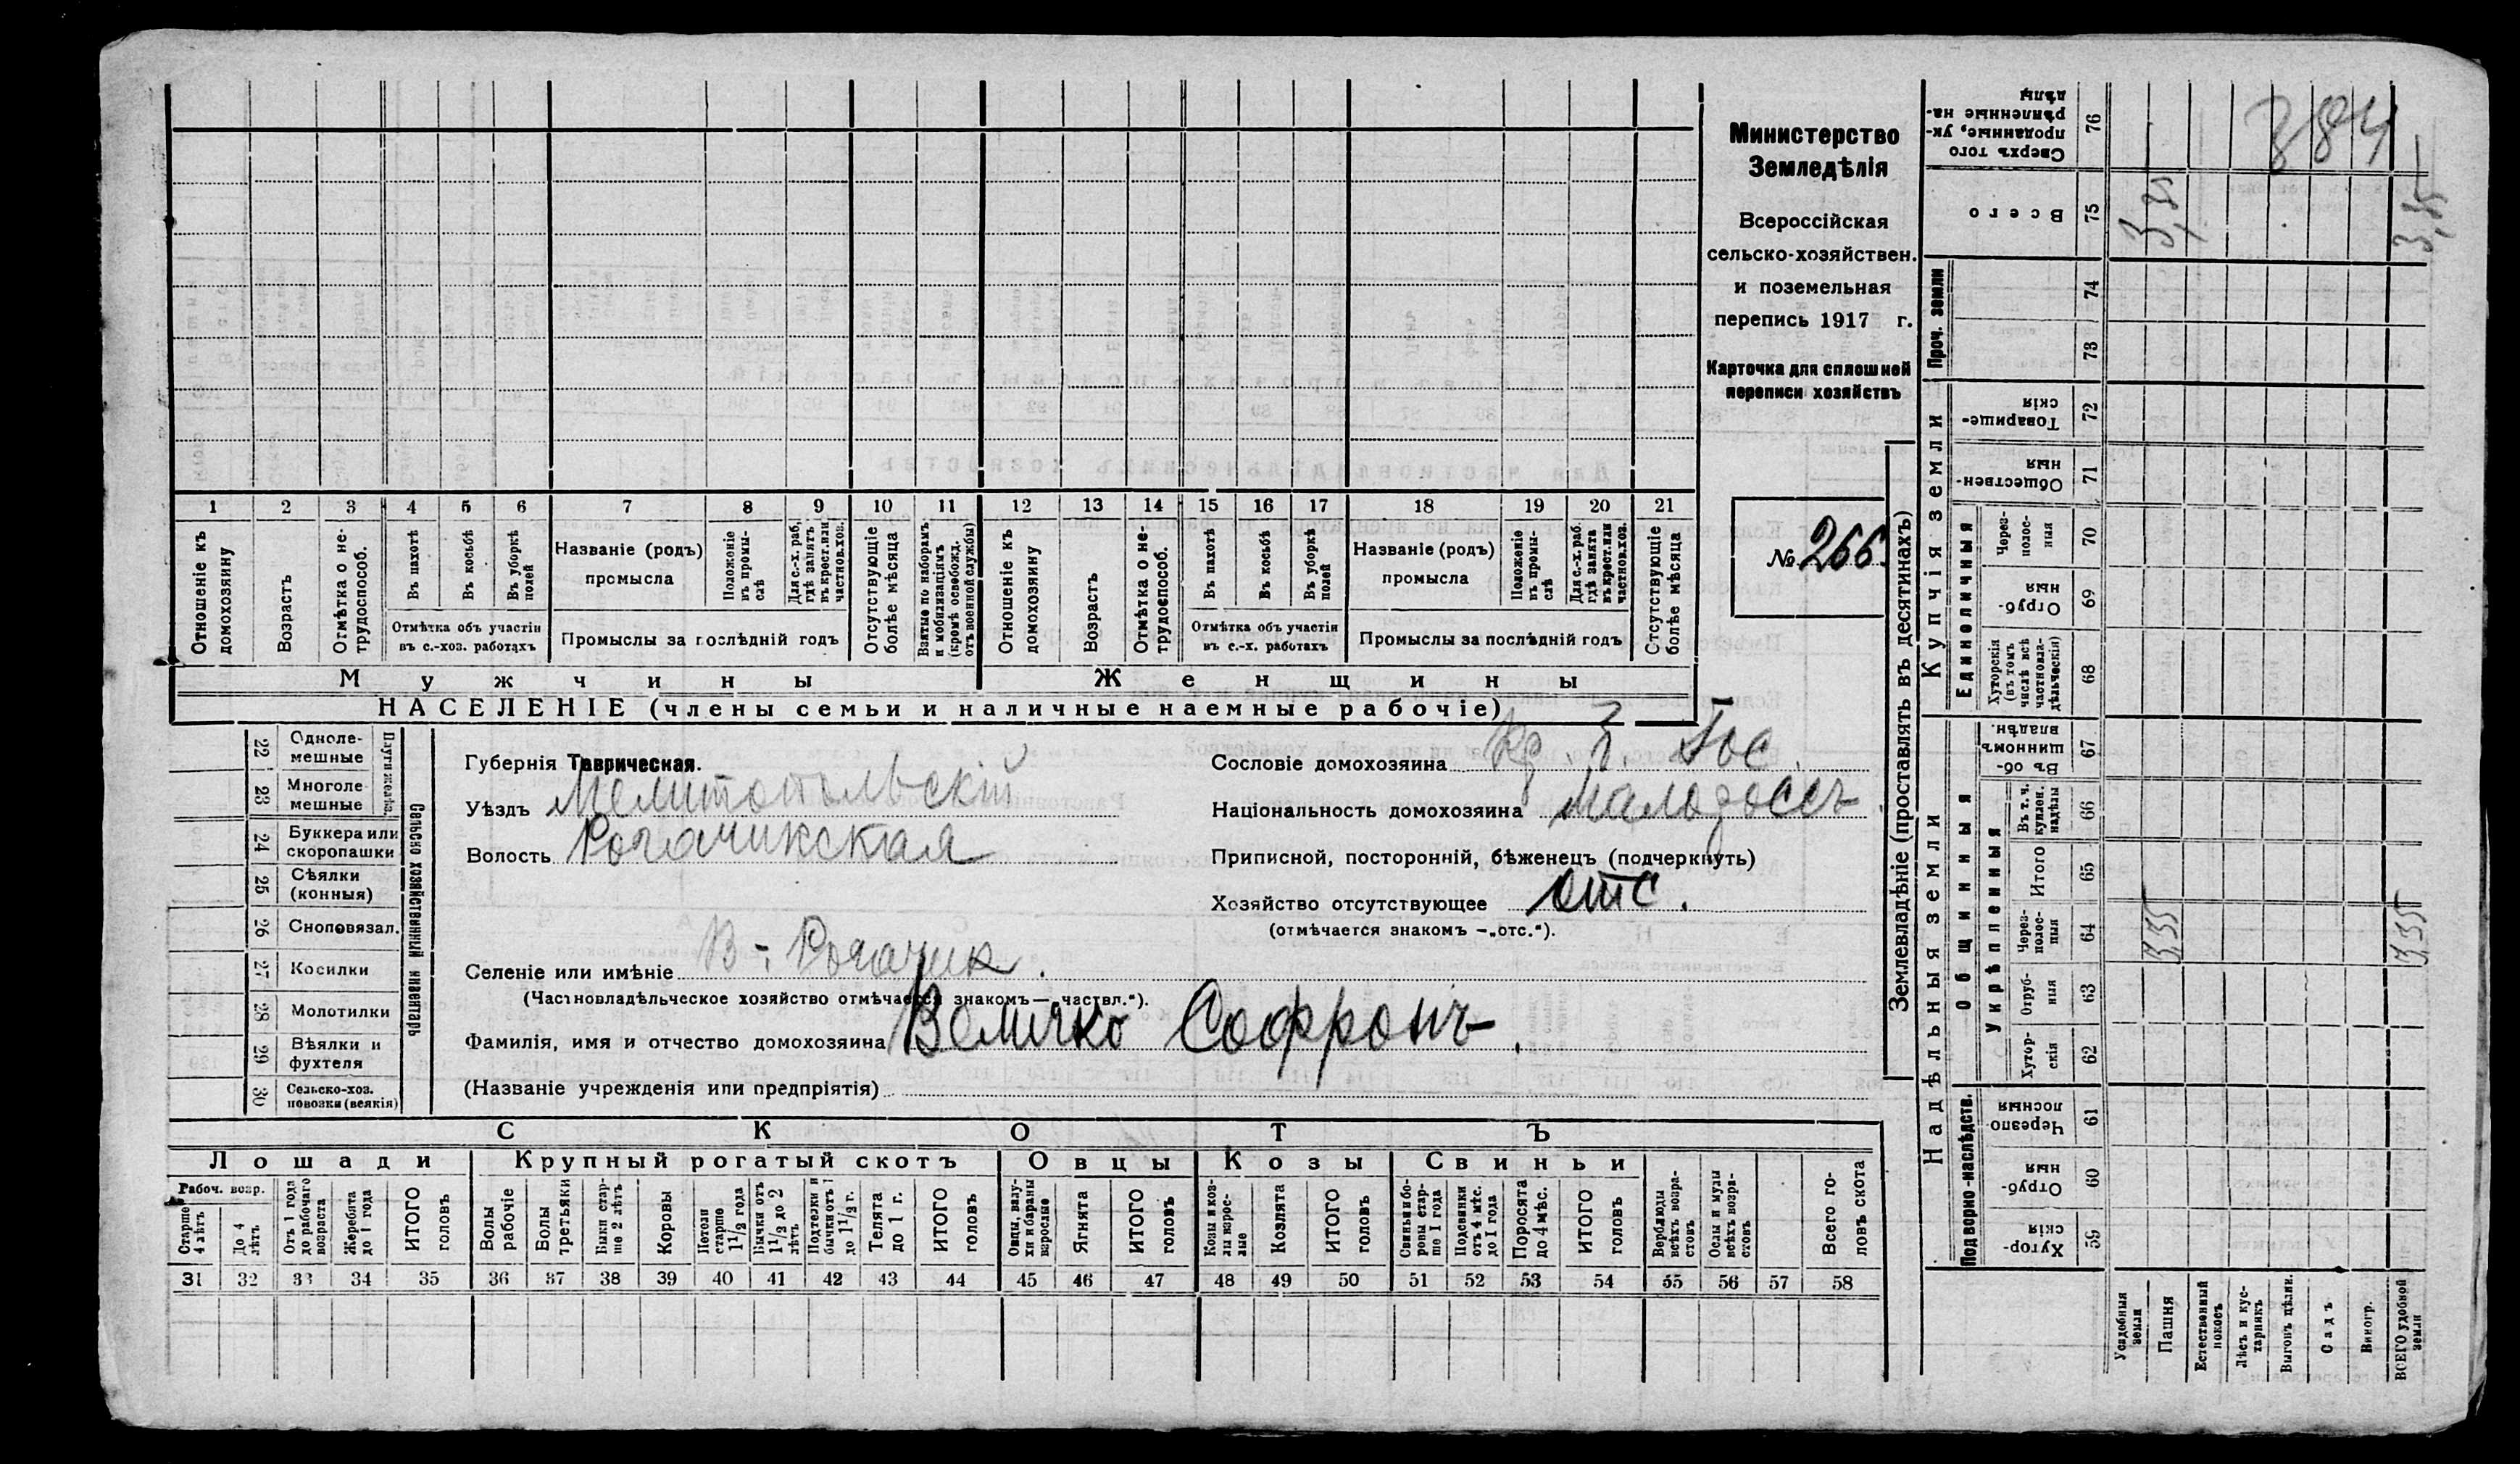 Министерство
Земледѣлія
Всероссійская
сельско-хозяйствен.
и поземельная
перепись 1917 г.
Карточка для сплошной
переписи хозяйствъ
№ 266.
1 2 3 4 5 6 7 8 9 10 11 12 13 14 15 16 17 18 19 20 21
Отношеніе къ домохозяину
Возрастъ
Отмѣтка о не-трудоспособ.
Въ пахотѣ
Въ косьбѣ
Въ уборкѣ полей
Отмѣтка объ участіи
въ с.-хоз. работахъ
Названіе (родъ)
промысла
Положеніе въ промы-слѣ
Для с.-х. раб. гдѣ занятъ въ крест. или частнов. хоз.
Промыслы за послѣдній годъ
Отсутствующіе болѣе мѣсяца
Взятые по наборамъ и мобилизаціямъ (кромѣ освобожд. отъ военной службы)
Отношеніе къ домохозяину
Возрастъ
Отмѣтка о не-трудоспособ.
Въ пахотѣ
Въ косьбѣ
Въ уборкѣ полей
Отмѣтка объ участіи
въ с.-х. работахъ
Названіе (родъ)
промысла
Положеніе въ промы-слѣ
Для с.-х. раб. гдѣ занята въ крест. или частнов. хоз.
Промыслы за послѣдній годъ
Отсутствующіе болѣе мѣсяца
Мужчины Женщины
НАСЕЛЕНІЕ (члены семьи и наличные наемные рабочіе)
Сельско хозяйственный инвентарь
22 Однолемешные
23 Многолемешные
24 Буккера или скоропашки
25 Сѣялки (конныя)
26 Сноповязал.
27 Косилки
28 Молотилки
29 Вѣялки и фухтеля
30 Сельско-хоз. повозки (всякія)
Губернія Таврическая.
Уѣздъ Мелитопольскій
Волость Рогачикская
Селеніе или имѣніе В-: Рогачик.
(Частновладѣльческое хозяйство отмѣчается знакомъ—„частвл.“).
Фамилія, имя и отчество домохозяина Величко Софронъ.
(Названіе учрежденія или предпріятія)
Сословіе домохозяина
Національность домохозяина Малоросъ
Приписной, посторонній, бѣженецъ (подчеркнуть)
Хозяйство отсутствующее отс.
(отмѣчается знакомъ —„отс.“).
СКОТЪ
Лошади Крупный рогатый скотъ Овцы Козы Свиньи
Рабоч. возр.
Старше 4 лѣтъ
До 4 лѣтъ
Отъ 1 года до рабочаго возраста
Жеребята до 1 года
ИТОГО головъ
Волы рабочіе
Волы третьяки
Быки стар-ше 2 лѣтъ
Коровы
Нетели старше 1 1/2 года
Бычки отъ 1 1/2 до 2 лѣтъ
Подтелки и бычки отъ 1 до 1 1/2 г.
Телята до 1 г.
ИТОГО головъ
Овцы, валу-хи и бараны взрослые
Ягнята
ИТОГО головъ
Козы и коз-лы взрос-лые
Козлята
ИТОГО головъ
Свиньи и бо-ровы стар-ше 1 года
Подсвинки отъ 4 мѣс. до 1 года
Поросята до 4 мѣс.
ИТОГО головъ
Верблюды всѣхъ возра-стовъ
Ослы и мулы всѣхъ возра-стовъ
Всего го-ловъ скота
31 32 33 34 35 36 37 38 39 40 41 42 43 44 45 46 47 48 49 50 51 52 53 54 55 56 57 58
Землевладѣніе (проставлять въ десятинахъ)
Надѣльныя земли Купчія земли Проч. земли
Подворно-наслѣдств.
Общинныя
Укрѣпленныя
Единоличныя
Хутор-скія 59
Отруб-ныя 60
Черезпо-лосныя 61
Хутор-скія 62
Отруб-ныя 63
Через-полос-ныя 64
Итого 65
Въ т. ч. куплен. надѣлы 66
Въ об-щинномъ владѣн. 67
Хуторскія (въ томъ числѣ всѣ частновла-дѣльческія) 68
Отруб-ныя 69
Через-полос-ныя 70
Обществен-ныя 71
Товарище-скія 72
73
74
Всего 75
Сверхъ того проданные, ук-рѣпленные на-дѣлы 76
Усадебныя земли
Пашня 3,35 3,35
Естественный покосъ
Лѣсъ и кус-тарникъ
Выгонъ цѣлин.
Садъ
Виногр.
ВСЕГО удобной земли 3,35 3,35
384